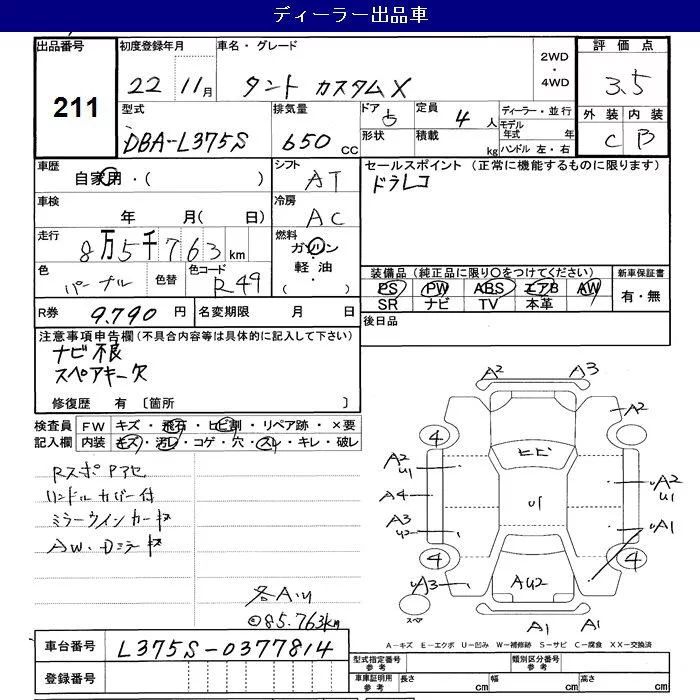 ディーラー出品車
出品番号 211
初度登録年月 22 11月
車名・グレード タント カスタムX
2WD・4WD
評価点 3.5
型式 DBA-L375S
排気量 650 CC
ドア 5
形状
定員 4 人
積載 kg
ディーラー・並行
モデル年式 年
ハンドル 左・右
外装 C 内装 B
車歴 自家用・( )
シフト AT
セールスポイント (正常に機能するものに限ります)
ドラレコ
車検 年 月( 日)
冷房 AC
走行 8万5千763 km
燃料 ガソリン・軽油・( )
色 パープル 色替 色コード R49
装備品 (純正品に限り〇をつけてください)
PS PW ABS エアB AW
SR ナビ TV 本革
新車保証書 有・無
R券 9.790 円 名変期限 月 日
後日品
注意事項申告欄(不具合内容等は具体的に記入して下さい)
ナビ不良
スペアキー欠
修復歴 有 〔箇所 〕
検査員記入欄
FW キズ・飛石・ヒビ割・リペア跡・×要
内装 キズ・汚れ・コゲ・穴・スレ・キレ・破レ
ハンドルカバー付
ミラーウインカーキズ
各AU
85.763km
A2 A3
A2
4
A2
U1
ヒビ
A4
U1
A2
U1
A3
U2
A1
4 4
A3
AU2
スペア
A1 A1
A-キズ E-エクボ U-凹み W-補修跡 S-サビ C-腐食 XX-交換済
車台番号 L375S-0377814
登録番号
型式指定番号 参考
類別区分番号 参考
車庫証明用 参考 長さ cm 幅 cm 高さ cm